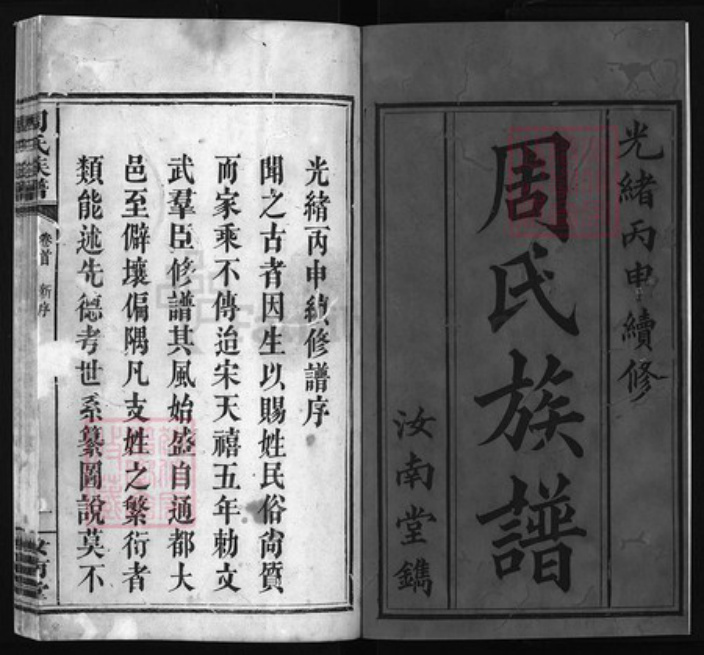 光緒丙申續修
周氏族譜
汝南堂鐫
光緒丙申續修譜序
聞之古者因生以賜姓民俗尚質
而家乘不傳迨宋天禧五年勅文
武羣臣修譜其風始盛自通都大
邑至僻壤偏隅凡支姓之繁衍者
類能述先德考世系纂圖說莫不
周氏族譜
卷首
新序
汝南堂